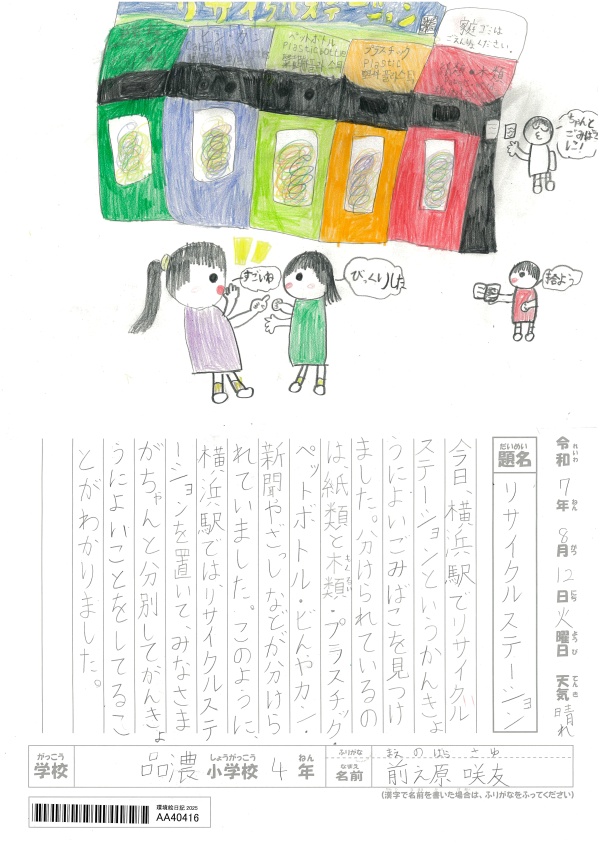 リサイクルステーション
ビン・カン
ペットボトル
Plastic bottle
プラスチック
Plastic
紙・木類
家庭ゴミは
ごえんりょください。
ちゃんと
ごみばこ
に!
すごいね
びっくりした
拾よう
令和7年8月12日火曜日 天気 晴れ
れいわ ねん がつ にち ようび てんき
だいめい
題名 リサイクルステーション
今日、横浜駅でリサイクル
ステーションというかんきょ
うによいごみばこを見つけ
ました。分けられているの
は、紙類と木類・プラスチック・
ペットボトル・ビンやカン・
新聞やざっしなどが分けら
れていました。このように、
横浜駅では、リサイクルステ
ーションを置いて、みなさま
がちゃんと分別してかんきょ
うによいことをしてるこ
とがわかりました。
がっこう しょうがっこう ねん
学校 品濃 小学校 4年
ふりがな まえ の はら さ ゆ
なまえ
名前 前之原 咲友
(漢字で名前を書いた場合は、ふりがなをふってください)
環境絵日記 2025
AA40416